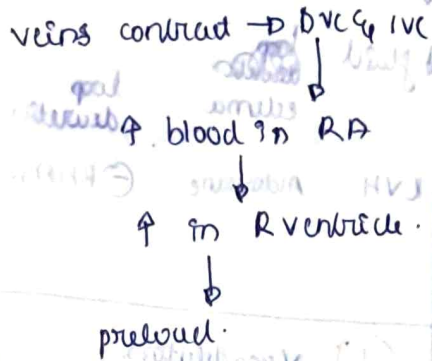 veins contract → SVC & IVC
↓
↑ blood in RA
↓
↑ in R ventricle.
↓
preload.